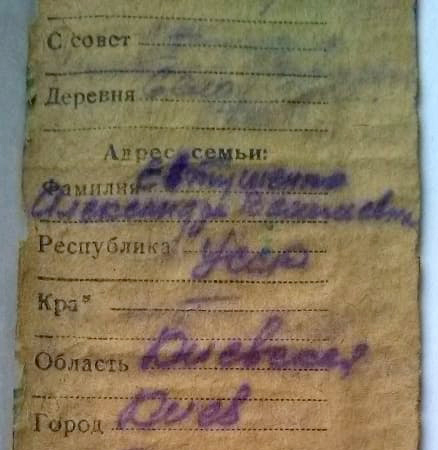 С совет
Деревня
Адрес семьи:
Фамилия Евтушенко
Александра
Республика Усср
Кра
Область Киевская
Город Киев